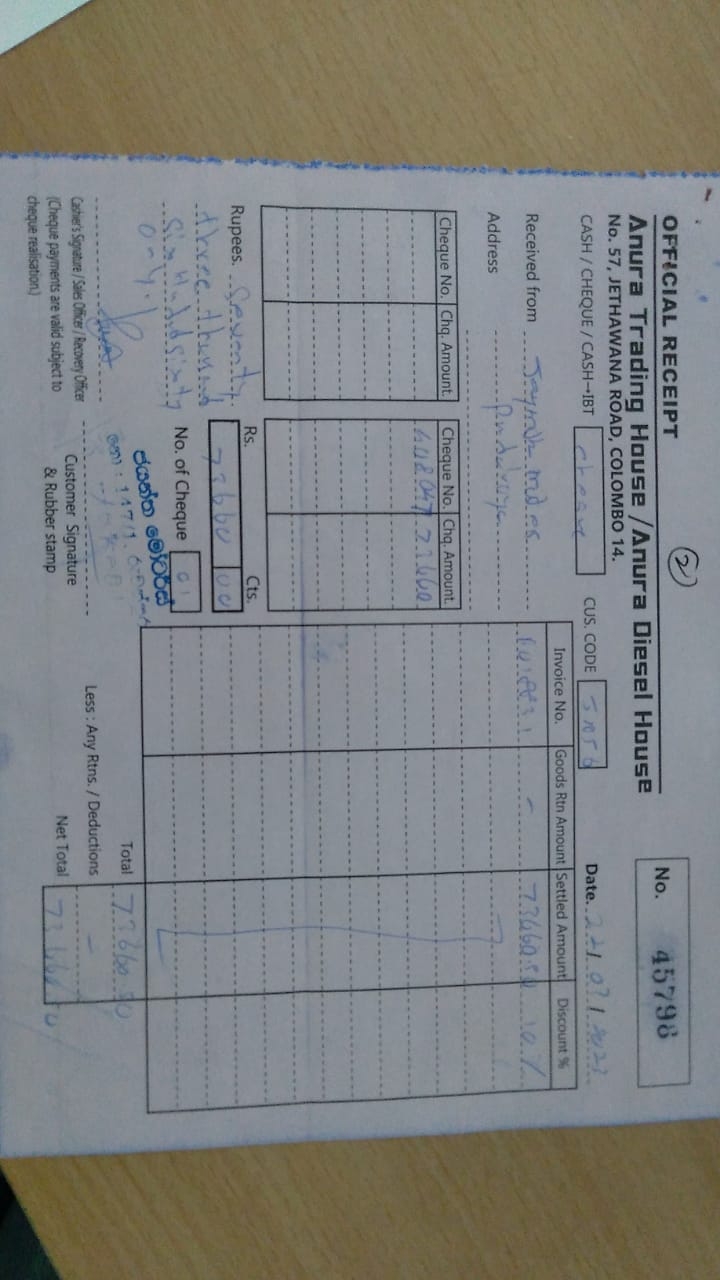 2
OFFICIAL RECEIPT
No. 45798
Anura Trading House / Anura Diesel House
No. 57, JETHAWANA ROAD, COLOMBO 14.
CASH / CHEQUE / CASH-IBT cheque CUS. CODE Date.
Received from
Address
Cheque No. Chq. Amount. Cheque No. Chq. Amount.
73660
Invoice No. Goods Rtn Amount Settled Amount Discount %
- 73660.50 10%
Rupees. Seventy
three thousand
Six Hundred Sixty
only
Rs. Cts.
73660 00
No. of Cheque 01
ජයන්ත මෝටර්ස්
Total 73660.50
Less : Any Rtns. / Deductions -
Net Total
Cashier's Signature / Sales Officer / Recovery Officer
(Cheque payments are valid subject to
cheque realisation.)
Customer Signature
& Rubber stamp